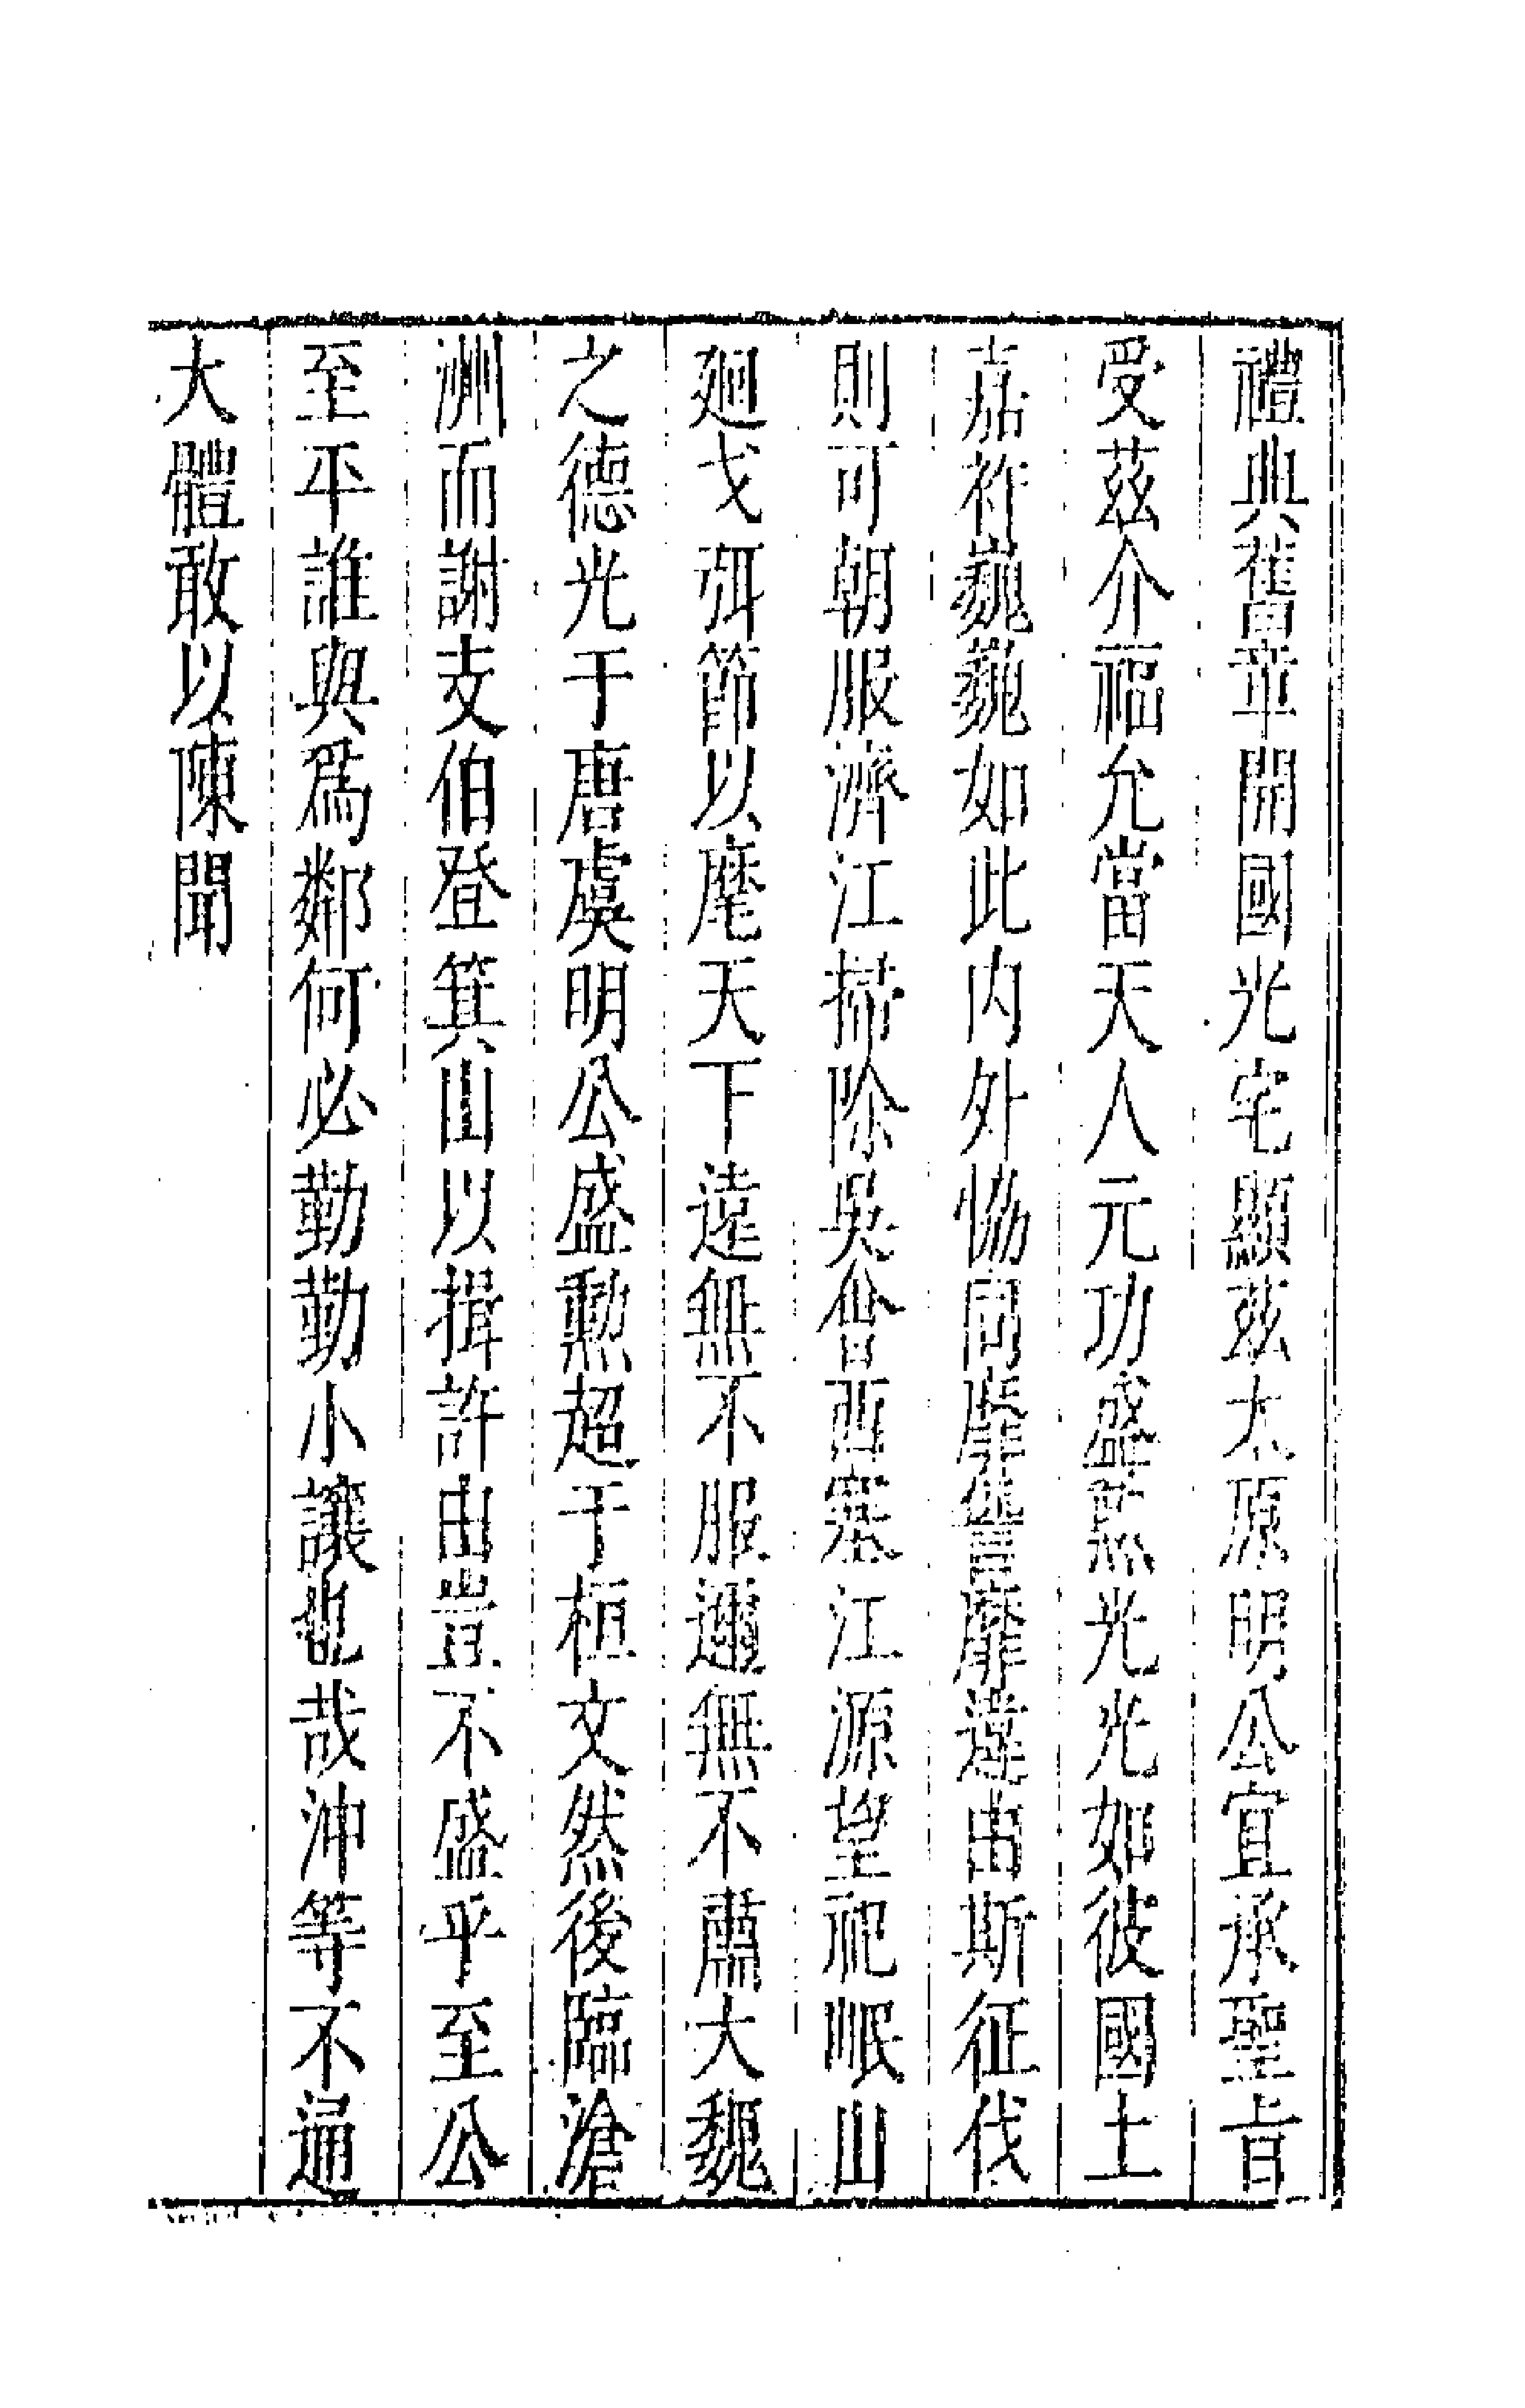 禮典舊章開國光宅顯茲太原明公宜承聖旨
受茲介福允當天人元功盛勲光光如彼國土
嘉祚巍巍如此内外恊同靡愆靡違由斯征伐
則可朝服濟江掃除吳會西塞江源望祀岷山
廻戈弭節以麾天下遠無不服邇無不肅大魏
之德光于唐虞明公盛勲超于桓文然後臨滄
洲而謝支伯登箕山以揖許由豈不盛乎至公
至平誰與爲鄰何必勤勤小讓也哉沖等不通
大體敢以陳聞